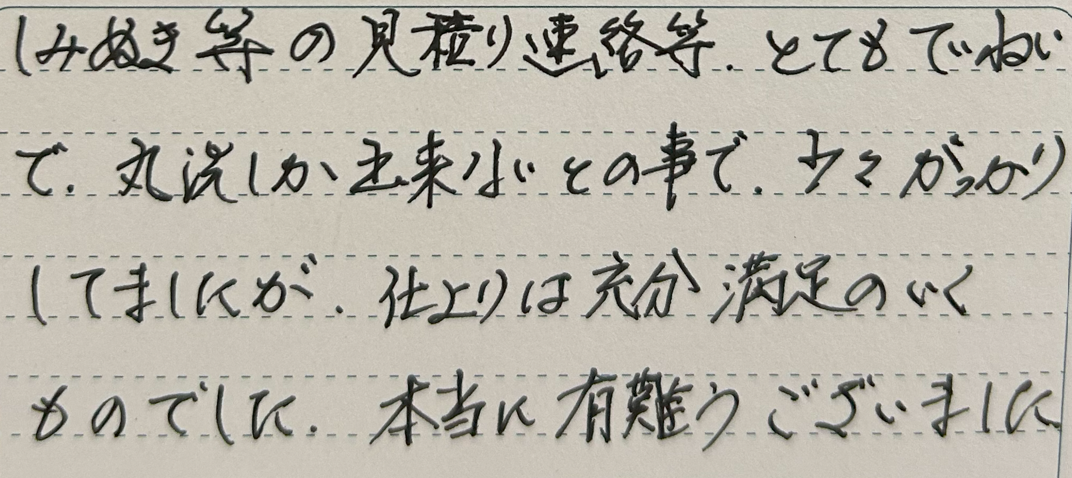 しみぬき等の見積り連絡等、とてもでいねい
で、丸洗しか出来ないとの事で、少々がっかり
してましたが、仕上りは充分満足のいく
ものでした。本当に有難うございました